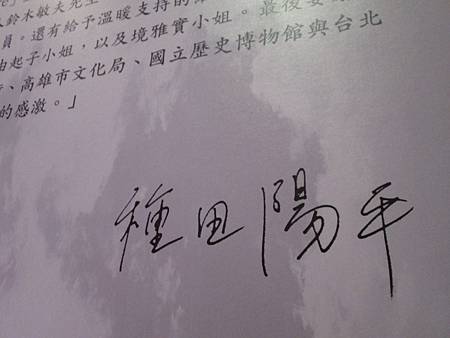 鈴木敏夫先生
員。還有給予溫暖支持的
由起子小姐,以及境雅實小姐。最後要
、高雄市文化局、國立歷史博物館與台北
的感激。」
種田陽平